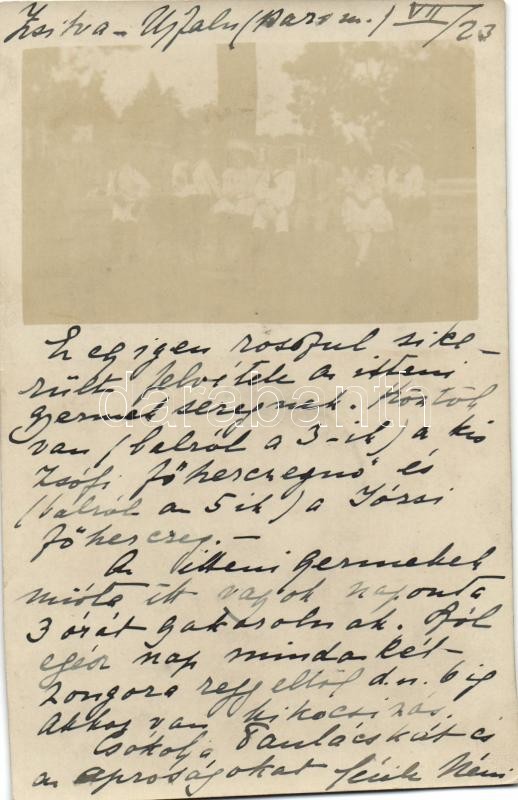 Zsitva-Ujfalu (Barsm.) VII/23
Ez egy igen rosszul sike-
rült felvétele az itteni
gyermek seregnek. Köztük
van (balról a 3-ik) a kis
Zsófi főherczegnő és
(balról az 5ik) a Józsi
főherczeg.-
Az itteni gyermekek
mióta itt vagyok naponta
3 órát gyakorolnak. Szól
egész nap mindakét
zongora reggeltől d.u. 6ig
akkor van kikocsizás.
Csókolja Paulácskát és
az apróságokat Néni
darabanth